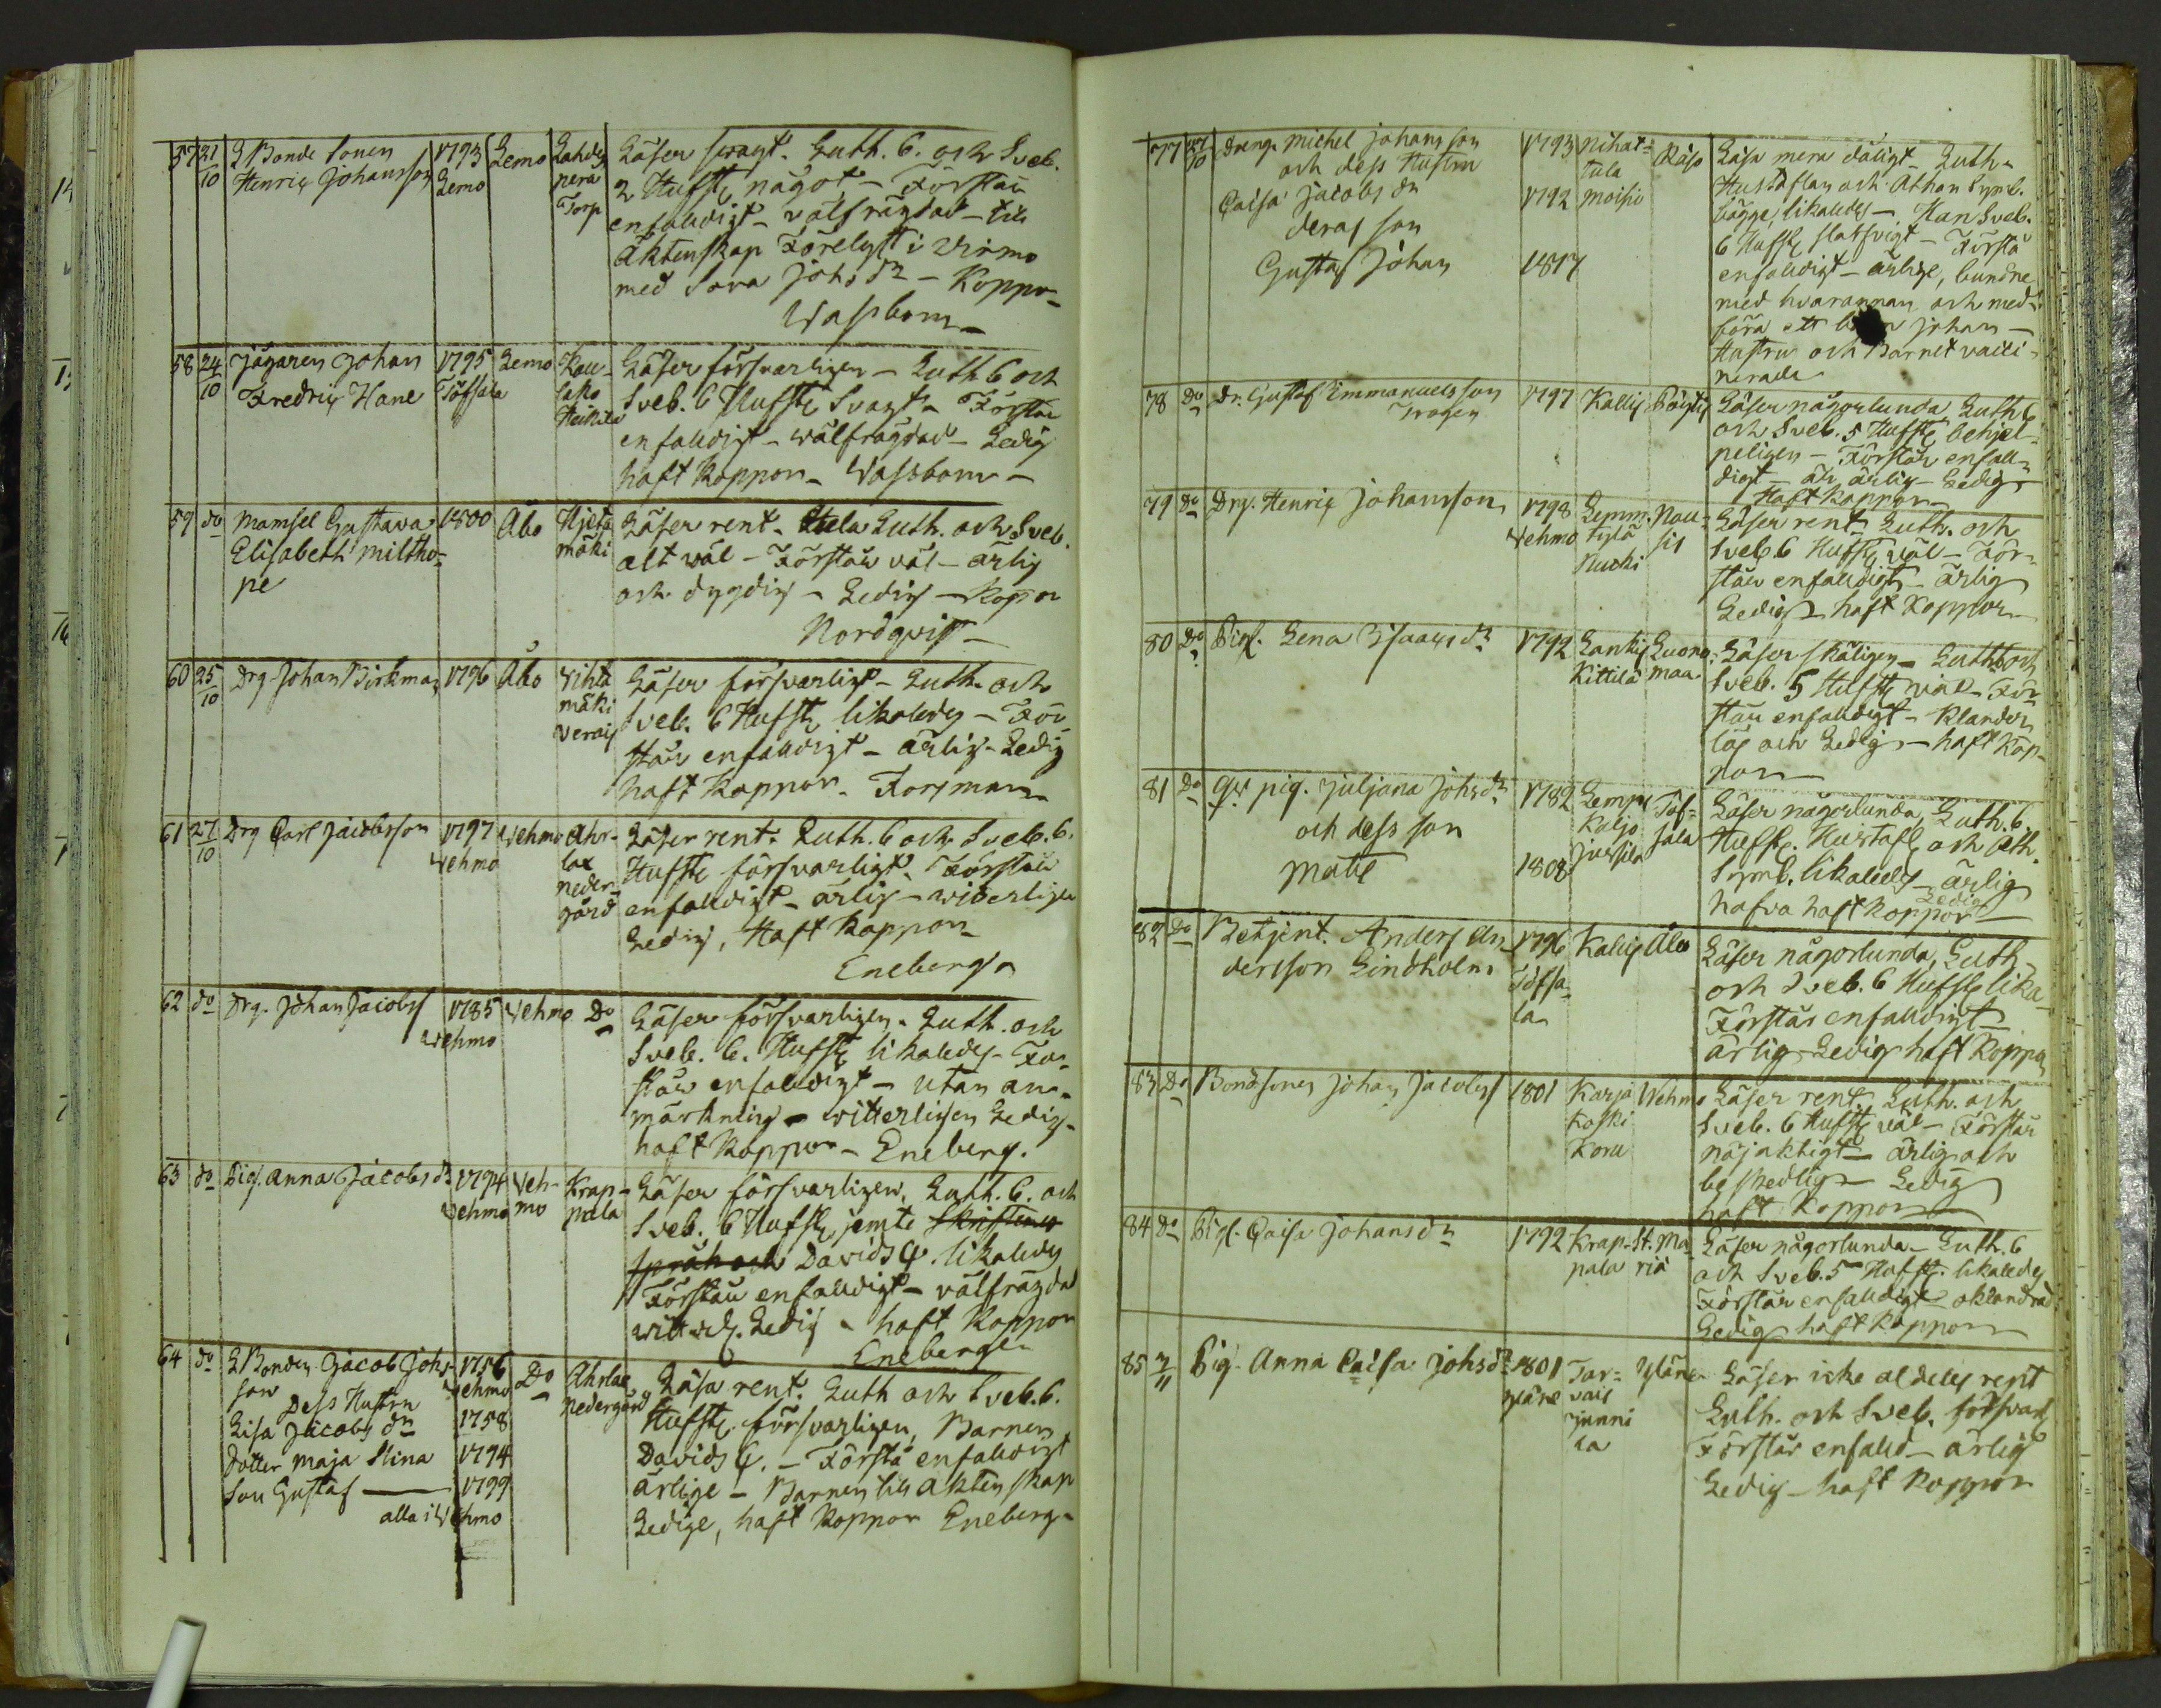 57 21/10 L Bonde Sonen Henric Johansson 1793 Lemo Lemo Lahdenpera Torp
Läser svagt. Luth. 6. och Sveb.
2 Hufst. något – Förstår
enfaldigt – välfrägdad – till
Äktenskap Förelyst i Virmo
med Sara Johsdr – Koppor –
Wassbom –
58 24/10 Jägaren Johan Fredric Hane 1795 Töfsala Lemo
Läser försvarligen – Luth 6 och
Sveb. 6 Hufst. Svagt – Förstår
enfaldigt – wälfrägdad – Ledig
haft Koppor – Wassbom –
59 do Mamsel Gustava Elisabeth Milthope 1800 Åbo Hjetamäki
Läser rent – Hela Luth. och Sveb.
alt wäl – Förstår väl – ärlig
och dygdig – Ledig – Koppor
Nordqvist –
60 25/10 Drg Johan Birkman 1796 Åbo Vihtamäki
Läser försvarligt – Luth. och
Sveb. 6 Hufst. likaledes – För
står enfaldigt – ärlig – Ledig
haft Koppor – Forsman
61 27/10 Drg Carl Jacobsson 1797 Vehmo Vehmo Ahrlax nedergård
Läser rent. Luth. 6 och Sveb. 6.
Hufst. försvarligt. Förstår
enfaldigt – ärlig – witterligen
Ledig, Haft Koppor –
Eneberg
62 do Drg. Johan Jacobss 1785 Vehmo Vehmo Do
Läser försvarligen. Luth. och
Sveb. 6. Hufst. likaledes – För
står enfaldigt – utan an-
märkning – witterligen Ledig –
haft Koppor – Eneberg.
63 do Pig. Anna Jacobsdr 1794 Vehmo Vehmo Krappala
Läser försvarligen. Luth. 6. och
Sveb. 6 Hufst. jemte Skriftenes
språk och Davids ψ. likaledes
Förstår enfaldigt – välfrägdad
Ledig – haft Koppor
Eneberg
64 do L Bonden Jacob Johsson 1756 Vehmo Do Ahrlax nedergård
Dess Hustru
Lisa Jacobs dr 1758
Dotter Maja Stina 1794
Son Gustaf 1799
alla i Vehmo
Läsa rent. Luth och Sveb. 6.
Hufst. försvarligen, Barnen
Davids ψ. – Förstå enfaldigt
ärlige – Barnen till Äktenskap
Ledige, haft Koppor Eneberg –
77 27/10 Dräng Michel Johansson 1793 Nihattula Moisio
och dess Hustru
Caisa Jacobs dr 1792
deras son
Gustaf Johan 1817
Läsa mera dåligt – Luth.
Hustaflan och Athan Symb.
bägge likaledes – Han Sveb.
6 Hufst. slätsvigt – Förstå
enfaldigt – ärlige, bundne
med hvarannan och med-
föra ett Johan –
Hustru och Barnet vacci-
nerade
78 Do Dr. Gustaf Emmanuelsson Trogen 1797 Kallis Pöytis
Läser någorlunda Luth 6
och Sveb. 5 Hufst. behjel-
peligen – Förstår enfal-
digt – är ärlig – Ledig –
Haft Koppor –
79 Do Drg. Henric Johansson 1798 Vehmo Nousis
Läser rent – Luth. och
Sveb. 6 Hufst. väl – För-
står enfaldigt – ärlig
Ledig – haft Koppor –
80 Do Pig. Lena Isaacsdr 1792 Lankis Kittilä Luonnonmaa
Läser skäligen – Luth 6 och
Sveb. 5 Hufst. väl – För
står enfaldigt – Klander
lös och Ledig – haft Kop-
por –
81 Do Qv. pig. Juljana Johsdr 1782 Lempis Kaljo Jussila Töfsala
och dess son
Matts 1808
Läser någorlunda Luth. 6.
Hufst. Hustafl. och Ath.
Symb. likaledes – ärlig
Ledig
hafva haft Koppor –
82 Do Betjent. Anders Andersson Lindholm 1796 Töfsala Kallis Åbo
Läser någorlunda, Luth.
och Sveb. 6 Hufst. lika –
Förstår enfaldigt –
ärlig – Ledig haft Koppor
83 Do Bondsonen Johan Jacobss 1801 Karjakoski Koru Wehmo
Läser rent. Luth. och
Sveb. 6 Hufst. väl – Förstår
nöjaktigt – ärlig och
beskedlig – Ledig
haft Koppor –
84 Do Pig. Caisa Johansdr 1792 Krappala St. Maria
Läser någorlunda – Luth. 6
och Sveb. 5 Hufst. likaledes
Förstår enfaldigt – oklandrad
Ledig – haft Koppor –
85 2/11 Pig. Anna Caisa Johsdr 1801 Yläne Yläne
Läser icke aldeles rent
Luth. och Sveb. försvarl.
Förstår enfald – ärlig
Ledig – haft Koppor